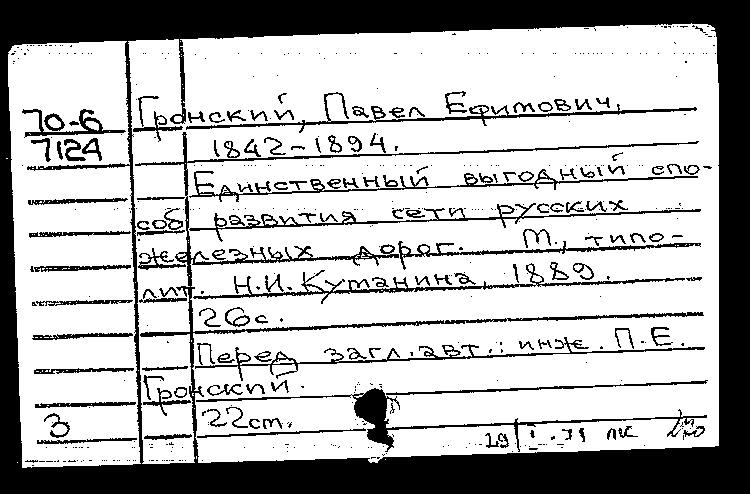 70-6 Гронский, Павел Ефимович,
7124 1842-1894.
Единственный выгодный спо-
соб развития сети русских
железных дорог. М., типо-
лит. Н.И. Куманина, 1889.
26с.
Перед загл. авт.: инж. П.Е.
Гронский.
3 22см.